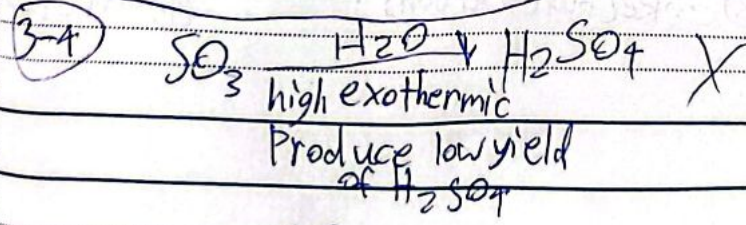 3-4 SO3 H2O H2SO4 X
high exothermic
Produce low yield
of H2SO4